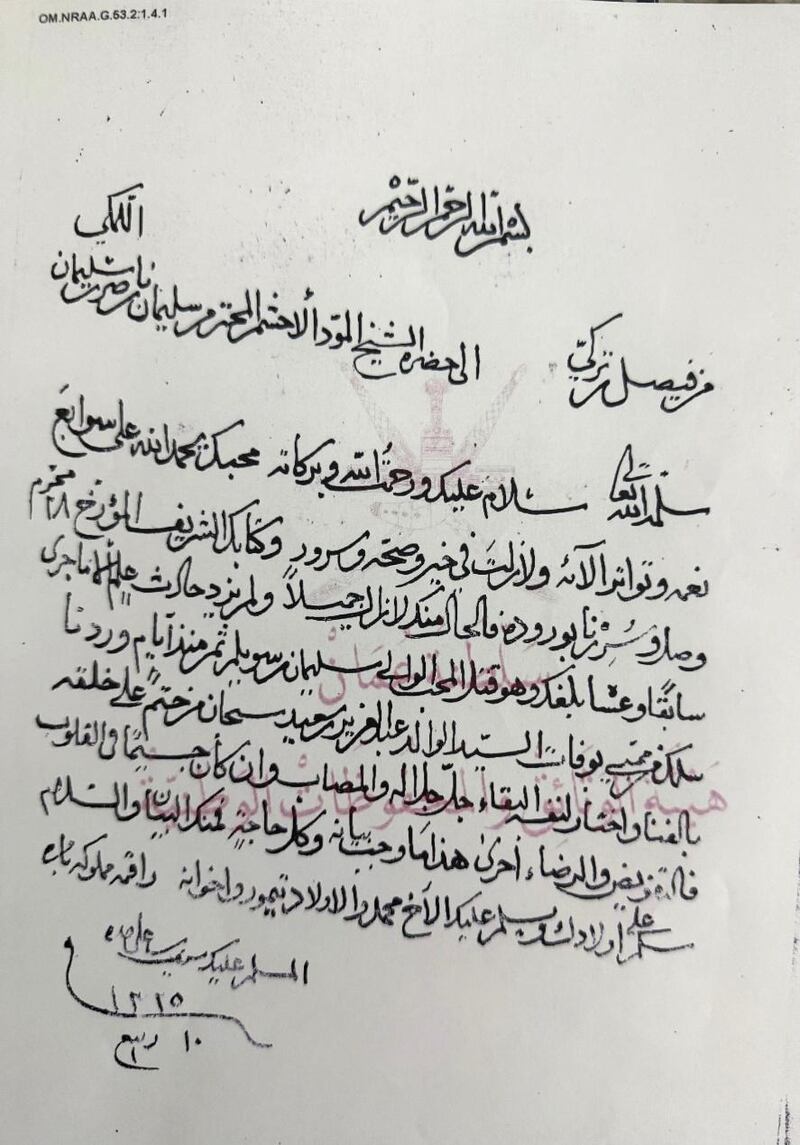 OM.NRAA.G.53.2:1.4.1
بسم الله الرحمن الرحيم
من فيصل بن تركي
الى حضرة الشيخ المود الاحشم المحترم سليمان بن ناصر بن سليمان
اللمكي
سلمه الله تعالى سلام عليك ورحمت الله وبركاته محبك بحمد الله على سوابغ
نعمه وتواتر آلائه ولازلت في خير وصحة وسرور وكتابك الشريف المؤرخ ٢٨ محرم
وصل وسرنا بوروده فالحال منك لازال جميلاً ولم يزيد حادث علم الا ما جرى
سابقاً وعسا بلغك وهو قتل المحب الوالي سليمان بن سويلم ثم منذ أيام وردنا
سلك من بوفات السيد الوالد عبد العزيز بن سعيد سبحان من حتم على خلقه
بالفنا واختار لنفسه البقاء جل جلاله والمصاب وان كان جسيماً في القلوب
فالتفويض والرضاء أحرى هذا ما وجب بيانه وكل حاجة لك منك البيان والسلام
سلم على أولادك ويسلم عليك الأخ محمد والاولاد تيمور واخوانه راقمه مملوكه
المسلم عليك بيده
١٣٢٥
١٠ ربيع ١
سلطنة عمان
هيئة الوثائق والمحفوظات الوطنية